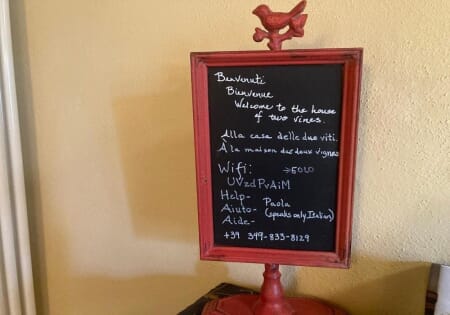 Benvenuti
Bienvenue
Welcome to the house
of two vines.
Alla casa delle due viti.
À la maison des deux vignes
Wifi: → SOLO
UVzdPvAiM
Help-
Aiuto- Paola
Aide- (speaks only Italian)
+39 349-833-8129